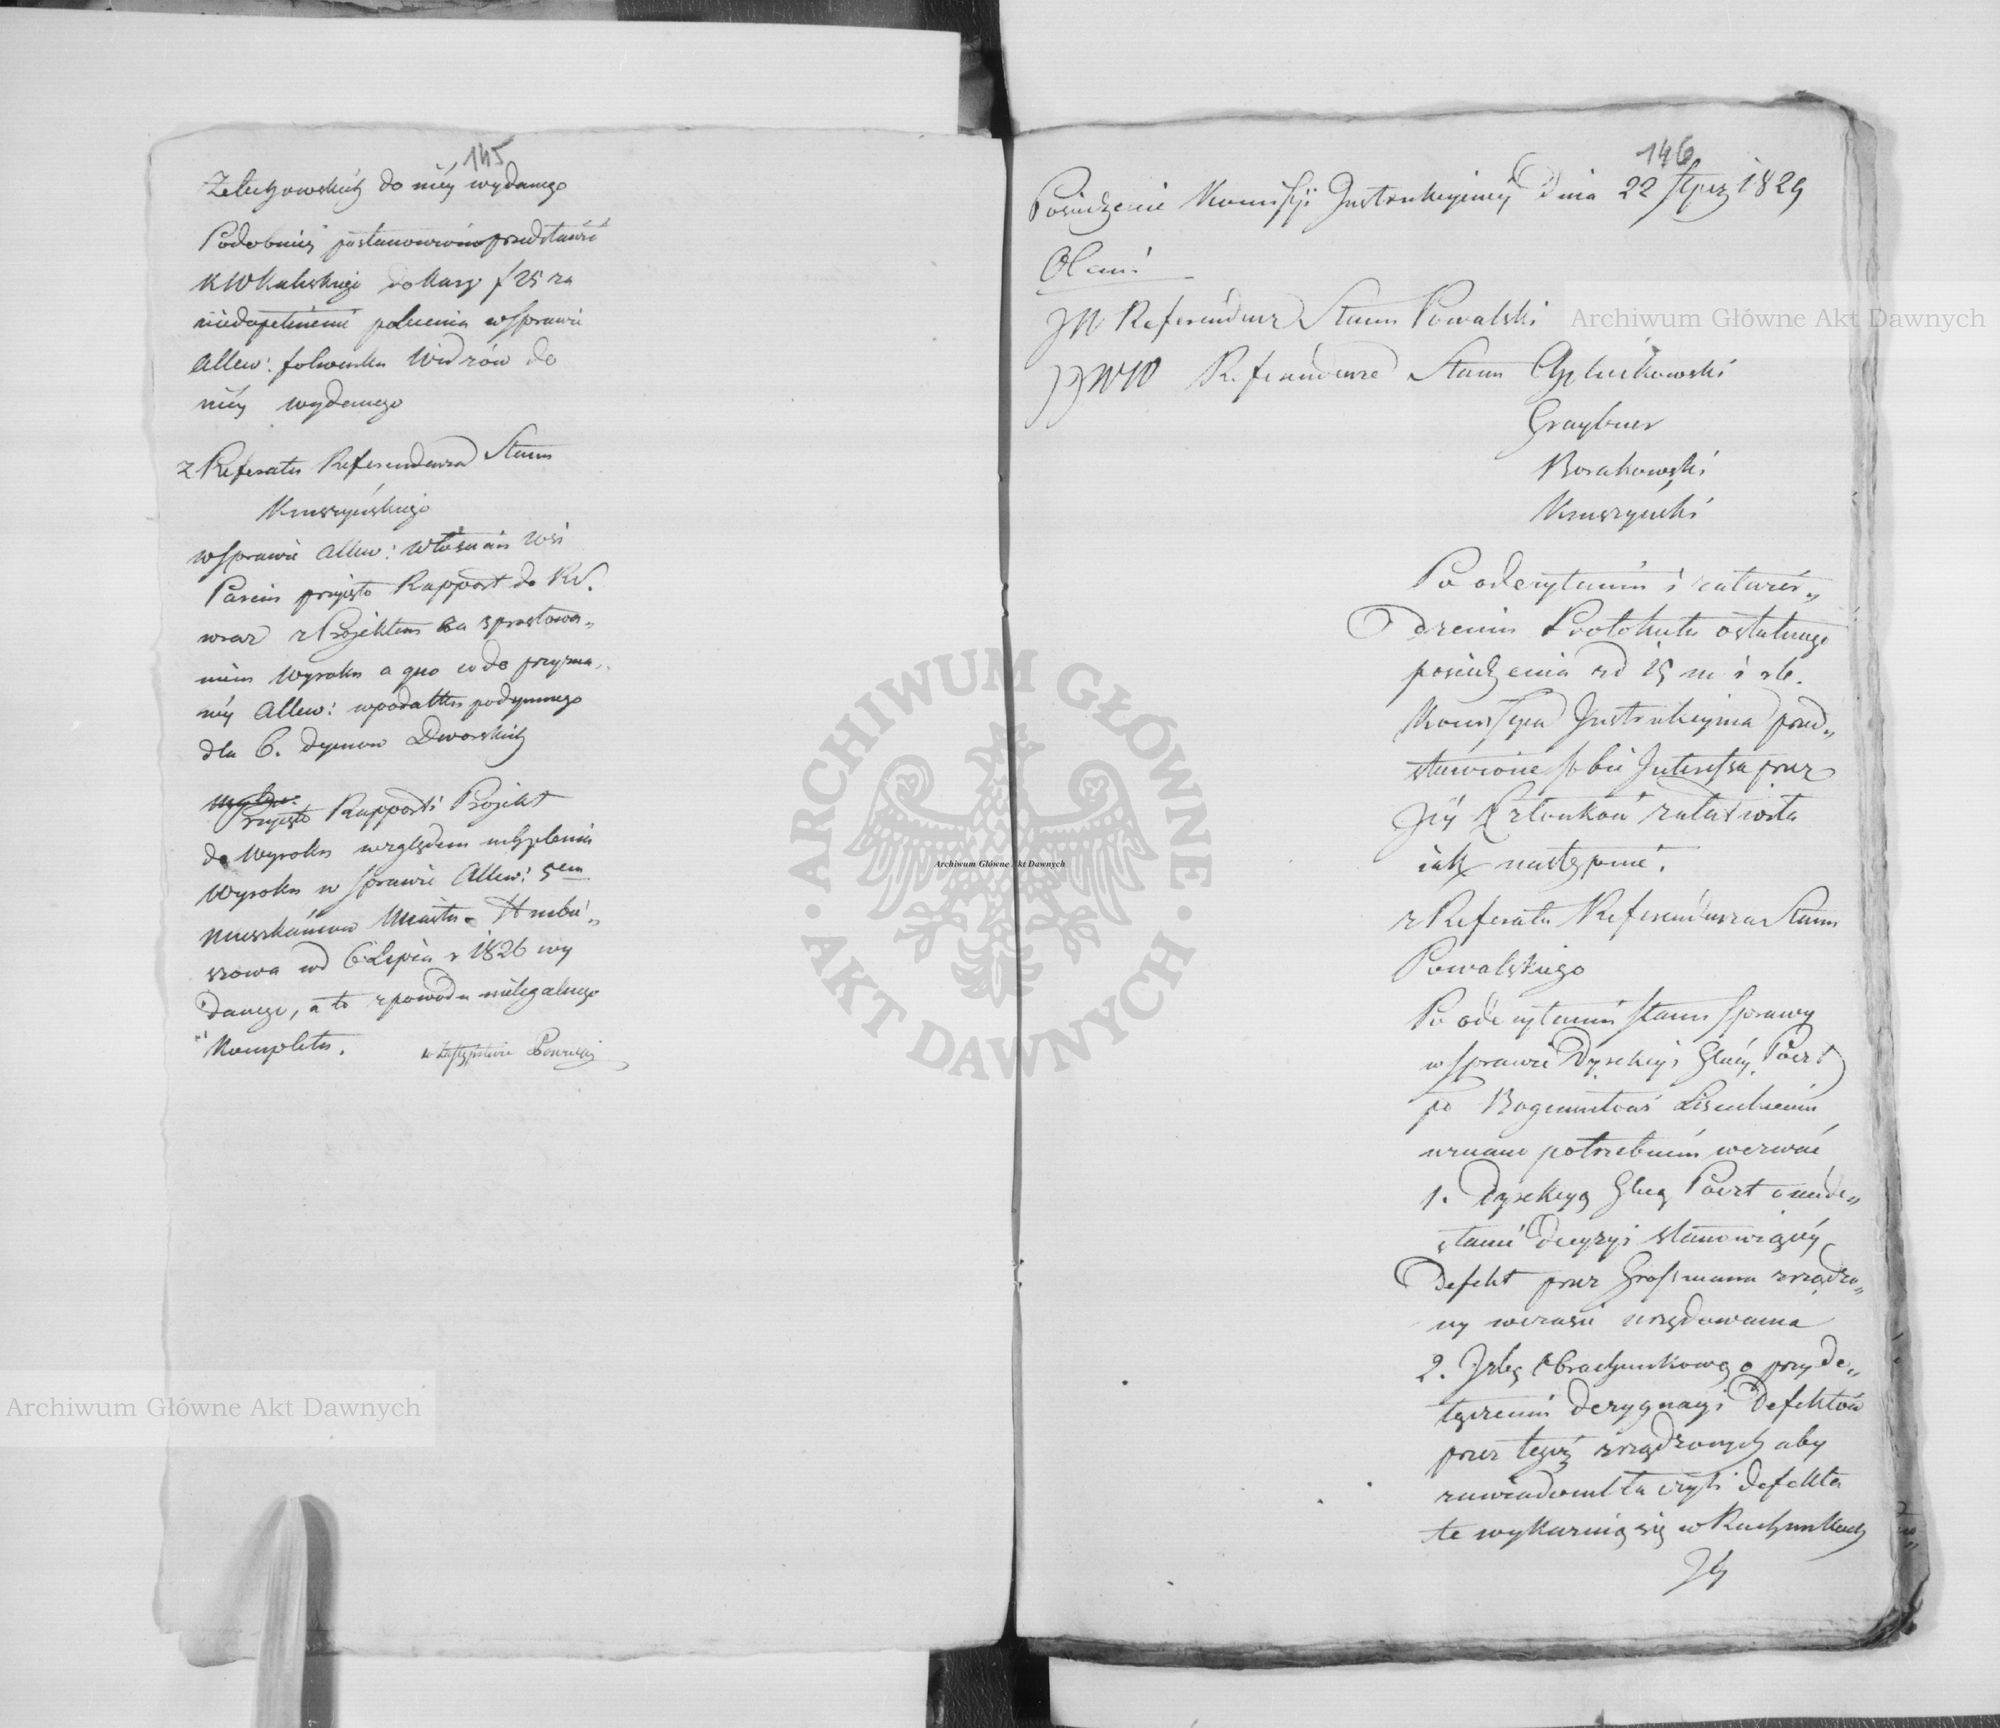 145
Żelechowskich do niéy wydanego
Podobnież postanowiono przedstawić
KWKaliskiego do kary f 25 za
niedopełnienie polecenia w sprawie
Allew: folwarku Widzów do
niéy wydanego
z Referatu Referendarza Stanu
Kruszyńskiego
w sprawie Allew: Włościan Wsi
przyięto Rapport do RS.
wraz z Projektem za sprostowa„
niem Wyroku a quo co do przyzna„
néy Allew: w podatku podymnego
dla 6. dymów Dworskich
Przyięto Rapport i Projekt
do Wyroku względem uchylenia
Wyroku w sprawie Allew: 5em
mieszkańcom Miasta Hrubie„
szowa pod 6 Lipca r 1826 wy
danego, a to z powodu nielegalnego
Kompletu.
w Zastępstwie
146
Posiedzenie Komissji Instrukcyinéy Dnia 22 Stycz 1829
Obecni
JW Referendarz Stanu Powalski
JJWW Referendarze Stanu
Graybner
Borakowski
Kruszyński
Po odczytaniu i zatwier„
dzeniu Protokułu ostatniego
posiedzenia z d 15 m i rb.
Komissya Instrukcyina przed„
stawione sobie Interessa przez
Jéy Członków załatwiła
iak następuie.
z Referatu Referendarza Stanu
Powalskiego
Po odczytaniu stanu sprawy
w sprawie Dyrekcyi Głnéy Poczt
po Bogumiłowi
uznano potrzebném wezwać
1. Dyrekcyą Głną Poczt o nade„
słanie Decyzyi stanowiącéy
Defekt przez Grossmana zrządzo„
ny w czasie urzędowania
2. Izbę Obrachunkową o przy do„
łączeniu dezygnacyi Defektów
przez tegoż zrządzonych aby
zawiadomiła czyli defekta
te wykazuią się w Rachunkach
Jéy
Archiwum Główne Akt Dawnych
Archiwum Główne Akt Dawnych
Archiwum Główne Akt Dawnych
ARCHIWUM GŁÓWNE
AKT DAWNYCH